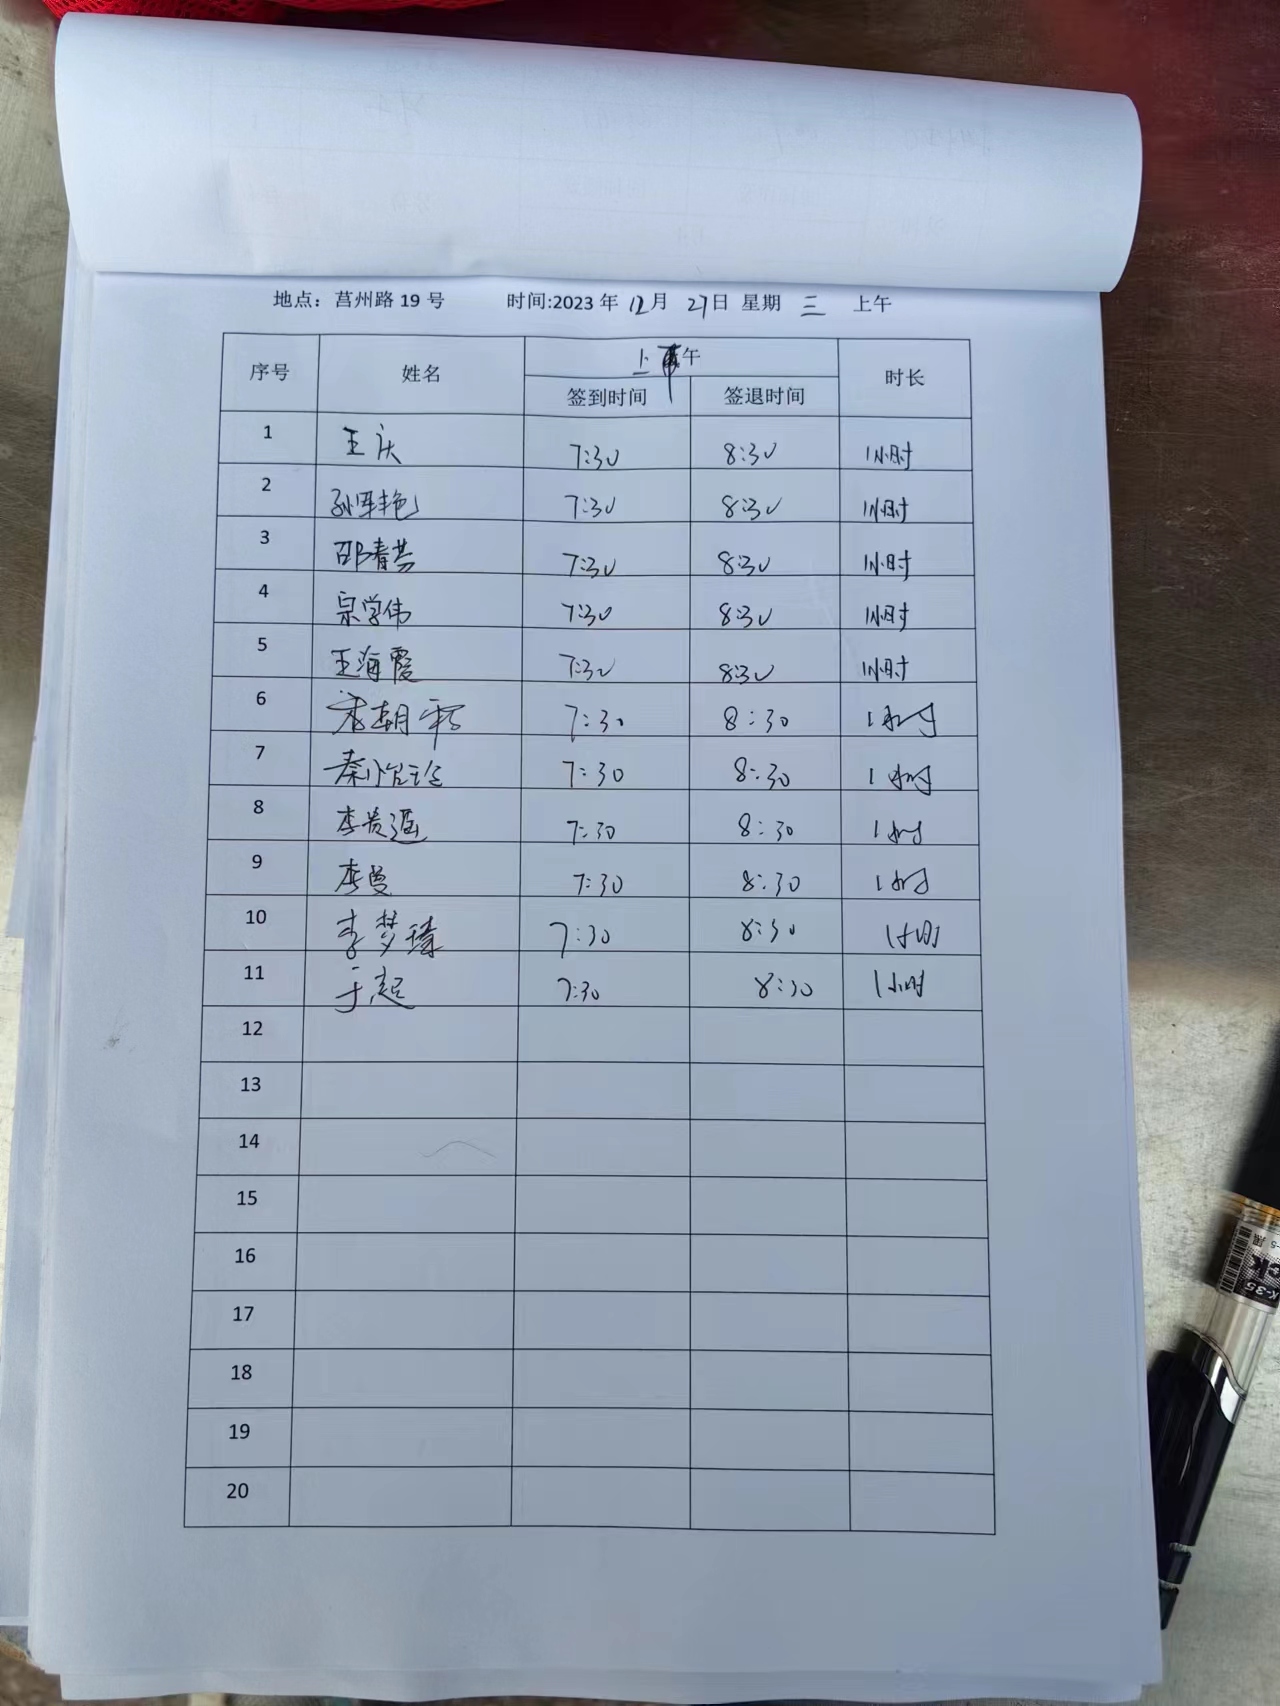 地点：莒州路 19 号 时间:2023 年 12 月 27 日 星期 三 上午
序号 姓名 上午 时长
签到时间 签退时间
1 王庆 7:30 8:30 1小时
2 孙军艳 7:30 8:30 1小时
3 邵春芸 7:30 8:30 1小时
4 宗学伟 7:30 8:30 1小时
5 王海霞 7:30 8:30 1小时
6 7:30 8:30 1小时
7 7:30 8:30 1小时
8 7:30 8:30 1小时
9 李曼 7:30 8:30 1小时
10 李梦 7:30 8:30 1小时
11 于起 7:30 8:30 1小时
12
13
14
15
16
17
18
19
20
K-35